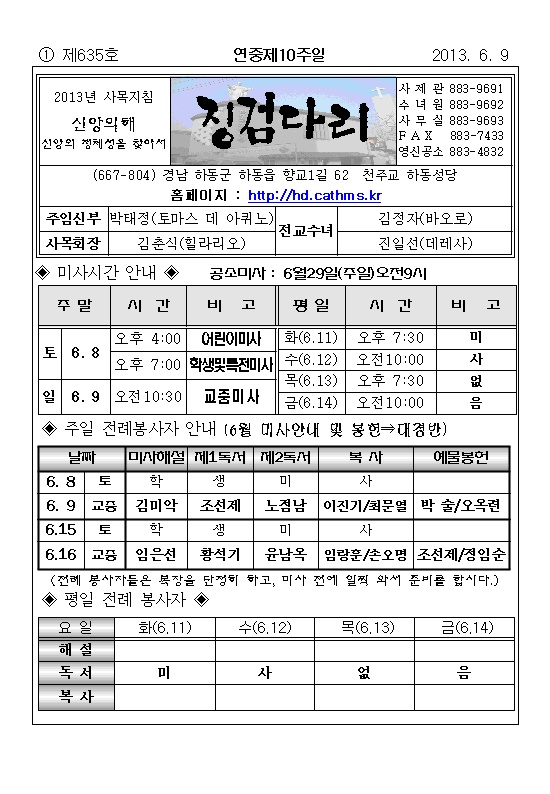 ① 제635호 연중제10주일 2013. 6. 9
2013년 사목지침
신앙의해
신앙의 정체성을 찾아서
징검다리
사 제 관 883-9691
수 녀 원 883-9692
사 무 실 883-9693
F A X 883-7433
영신공소 883-4832
(667-804) 경남 하동군 하동읍 향교1길 62 천주교 하동성당
홈페이지 : http://hd.cathms.kr
주임신부 박태정(토마스 데 아퀴노) 전교수녀 김정자(바오로)
사목회장 김춘식(힐라리오) 진일선(데레사)
◈ 미사시간 안내 ◈ 공소미사 : 6월29일(주일)오전9시
주 말 시 간 비 고 평 일 시 간 비 고
토 6. 8 오후 4:00 어린이미사 화(6.11) 오후 7:30 미
오후 7:00 학생및특전미사 수(6.12) 오전10:00 사
목(6.13) 오후 7:30 없
일 6. 9 오전10:30 교중미사 금(6.14) 오전10:00 음
◈ 주일 전례봉사자 안내 (6월 미사안내 및 봉헌⇒대경반)
날짜 미사해설 제1독서 제2독서 복 사 예물봉헌
6. 8 토 학 생 미 사
6. 9 교중 김미악 조선제 노점남 이진기/최문열 박 술/오옥련
6.15 토 학 생 미 사
6.16 교중 임은선 황석기 윤남옥 임랑훈/손오명 조선제/정임순
(전례 봉사자들은 복장을 단정히 하고, 미사 전에 일찍 와서 준비를 합시다.)
◈ 평일 전례 봉사자 ◈
요 일 화(6.11) 수(6.12) 목(6.13) 금(6.14)
해 설
독 서 미 사 없 음
복 사